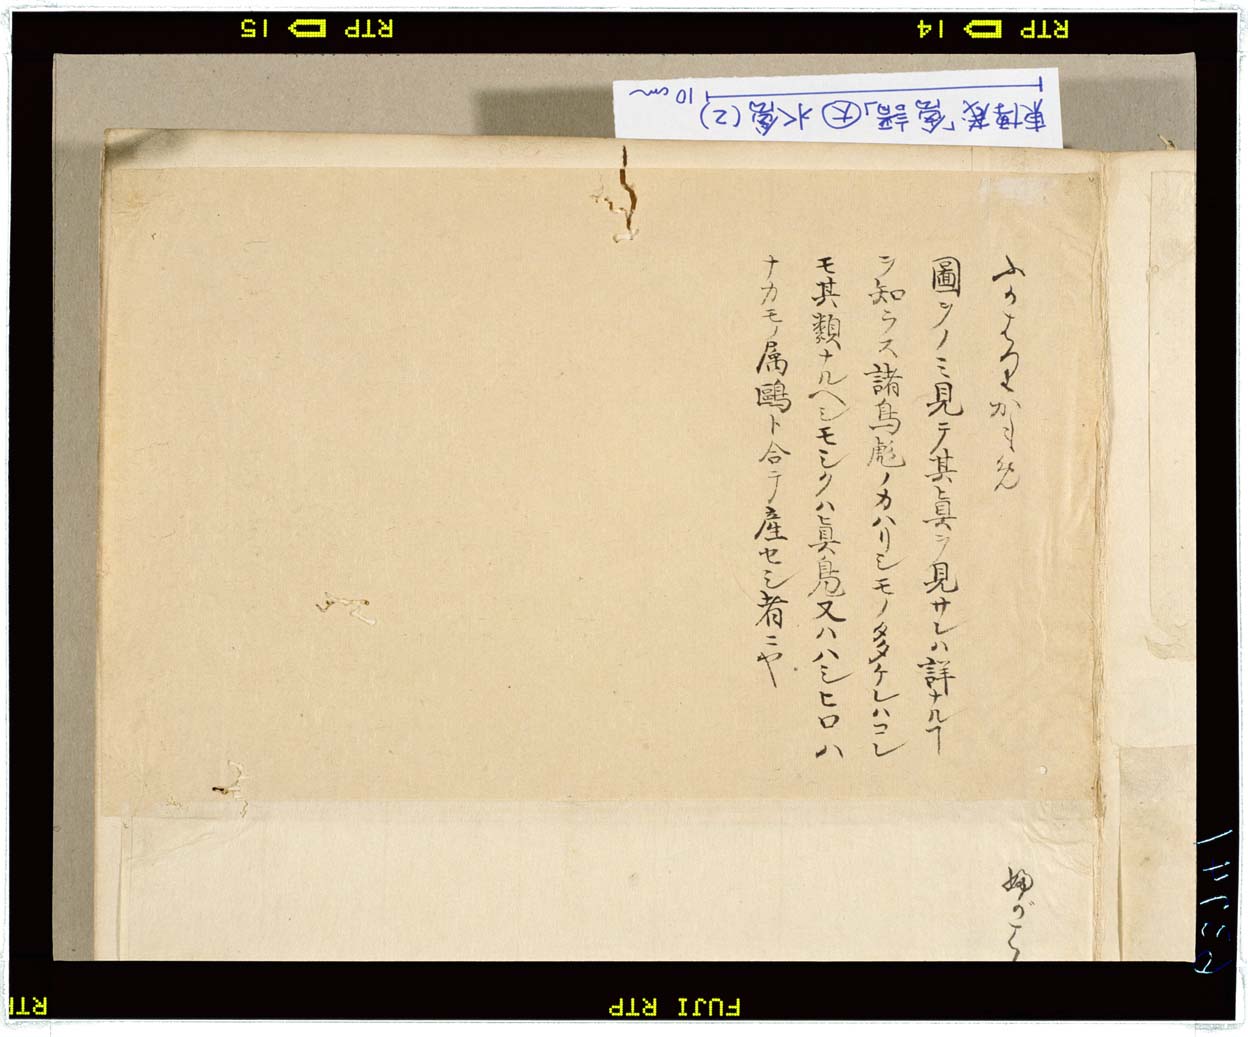 RTP 14
RTP 15
東博蔵「禽譜」㊅ 水禽(2)
10cm
ふかはりかもめ
圖ヲノミ見テ其眞ヲ見サレハ詳ナルヿ
ヲ知ラス諸鳥彪ノカハリシモノ多ケレハコレ
モ其類ナルヘシモシクハ眞鳧又ハハシヒロハ
ナカモノ属鷗ト合テ産セシ者ニヤ
婦がは
FUJI RTP
RTP